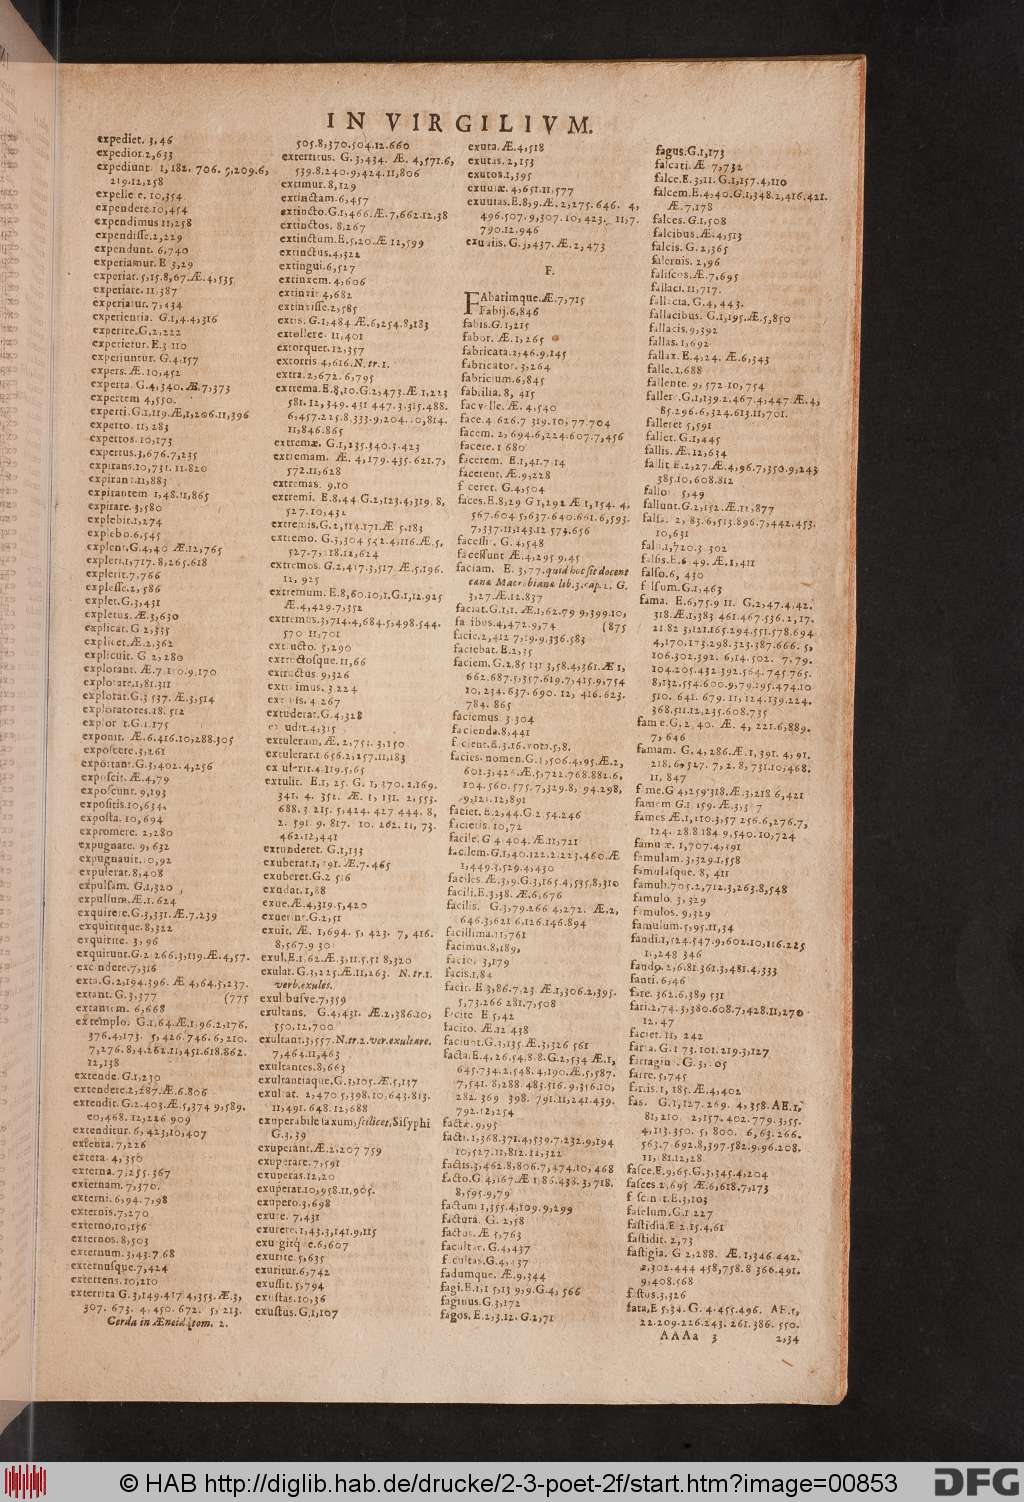 IN VIRGILIVM.
expediet. 3,46
expedior.2,633
expediunt. 1, 182. 706. 5,209.6,
219.12,258
expelle e. 10,354
expendere.10,454
expendimus 11,258
expendisse.2,229
expendunt. 6,740
experiamur. E 3,29
experiar. 5,15.8,67.Æ.4,535
experiare. 11.387
experiatur. 7,434
experientia. G.1,4.4,316
experire.G.2,222
experietur. E.3 110
experiuntur. G.4,157
expers. Æ. 10,452
experta. G.4,340. Æ.7,373
expertem 4,550.
experti.G.1,119.Æ,1,206.11,396
experto. 11, 283
expertos. 10,173
expertus.3,676.7,235
expirans.10,731. 11.820
expirant.11,883
expirantem 1,48.11,865
expirare. 3,580
explebit.1,274
explebo.6,545
explent.G.4,40 Æ.12,765
expleri.1,717.8,265.618
explerit.7,766
explesse.2, 586
explet.G.3,431
expletus. Æ.3,630
explicat. G 2,335
explicet.Æ.2.362
explicuit. G 2,280
explorant. Æ.7.150.9.170
explorare.1,81.311
explorat.G.3 537. Æ.3,514
exploratores.18. 512
G.1.175
exponit. Æ.6.416.10,288.305
exposcere.3,261
expoſtant.G.3,402. 4,256
Æ.4,79
exposcunt. 9,193
expositis.10,634.
exposta. 10, 694
expromere. 2,280
expugnare. 9, 632
expugnavit.10,92
expulerat.8,408
expulsam. G.1,320
expulsum.Æ.1. 624
exquirere.G.3,331.Æ.7.239
exquiritque.8,322
exquirite. 3, 96
exquirunt.G.2 266.3,119.Æ.4,57.
7,316
exta.G.2,194.396. Æ 4,64.5,237.
extant. G.3,377 (775
extantem. 6,668
extemplo. G.1,64.Æ.1,96.2,176.
376.4,173. 5,426.746. 6, 210.
7,276. 8,4.262.11,451.618.862.
12,138
extende. G.1,230
extendere.2,287.Æ.6.806
extendit. G.2.403.Æ.5,374 9,589.
10,468. 12,226 909
extenditur. 6, 423,10,407
extenta. 7,226
extera. 4, 350
externa.7,255.367
externam. 7,370.
externi. 6,94.7,98
externis.7,270
externo.10,156
externos. 8,503
externum. 3,43.7.68
externusque.7,424
exterrens. 10,210
exterrita G.3,149.417 4,353.Æ.3,
307. 673. 4, 450. 672. 5, 213.
Cerda in Æneid. tom. 2.
505.8,370.504.12.660
exterritus. G.3,434. Æ. 4,571.6,
539.8.240.9,424.11,806
eximur. 8,129
extinctam.6,457
extincto.G.1,466.Æ.7,662.12,38
extinctos. 8.267
extinctum.E.5,20.Æ 12,599
extinctus.4,322
extingui.6,527
extinxem. 4,606
4,682
extinxisse.2,585
extis. G.1,484 Æ.6,254.8,183
extollere. 11,401
extorquet.12,357
extorris 4,616.N.tr.1.
extra.2,672. 6,795
extrema.E.8,20.G.2,473.Æ 1,223
581. 12, 349. 431 447. 3.315.488.
6,457.225.8.333.9,204.10,814.
11,846.865
extremæ. G.1,235.340.3.423
extremam. Æ. 4,179.435. 621.7,
572.11,628
extremas. 9,10
extremi. E.8,44 G.2,123.4,319. 8,
527.10,432
extremis.G.2,114.171.Æ 5.183
extremo. G.3,304 542.4,116.Æ.5,
527.7,218.12,624
extremos. G.2,417.3,517 Æ.5,196.
12, 925
extremum. E.8,60.10,1.G.1,12.925
Æ.4,429.7,352
extremus.3,714.4,684.5,498.544.
570 11,701
5,290
extructosque.11,66
extructus. 9,326
extrudimus.3.224
4 267
extuderat. G.4,328
4,315
extuleram, Æ. 2,753. 3,150
extulerat.1 656.2,257.11,183
4.119.5,65
extulit. E.1, 25. G. 1, 370. 2.169.
341. 4. 352. Æ. 1, 131. 2, 553.
688. 3 215. 5,424. 427 444. 8,
2. 591. 9. 817. 10. 262. 11, 73.
462.12,441
extunderet. G.1,133
exuberat.1, 191. Æ.7.465
exuberet.G.2 516
exudat. 1,88
exue.Æ.4,319.5,420
exuerint.G.2,51
exuit. Æ. 1,694. 5, 423. 7, 416.
8,567.9 30
exul.E.1.62.Æ.3,11.5.51 8,320
exulat. G.3,225.Æ.11,263. N.tr.1.
verb.exules.
exul busve.7,359
exultans. G.4,431. Æ.2,386.10,
550.12,700
exultant.3,557.N.tr.2.ver.exultare.
7,464.11,463
exultantes.8,663
exultantiaque.G.3,105.Æ.5,137
exultat. 2,470 5,398. 10,643.813.
11,491. 648. 12,688
exuperabile saxum, scilicet, Sisyphi
G.3, 39
exuperant.Æ.2,207 759
exuperare.7,591
exuperas.12,20
exuperat.10,958.11,905.
exupero.3,698
exuere. 7,431
exurere.1,43.3,141.9,115
6,607
exurite. 5,635
exuritur.6,742
exussit. 5,794
exustas.10,36
exustus. G.1,107
exuta.Æ.4,518
exutas. 2,153
exutos.1,395
exuuiæ. 4,651.11,577
exuuias.E.8,9.Æ.2,275. 646. 4,
496.507.9,307. 10, 423. 11,7.
790.12.946
exuuiis. G.3,437. Æ.2,473
F.
FAbatimque.Æ.7,715
Fabij.6,846
fabis.G.1,215
fabor. Æ.1,265
fabricata.2,46.9,145
fabricator.3,264
fabricium.6,845
fabrilia. 8, 415
Æ.4,540
face.4 626.7 319.10,77.704
facem. 2, 694.6,224.607.7,456
facere.1 680
facerem. E.1,41.7 14
facerent. Æ.9,228
G.4,504
faces.E.8,29 G 1,292 Æ 1,154. 4,
567.604 5,637.640.661.6,593.
7,337.11,143.12 573.656
G. 4,548
facessunt Æ.4,295 9,45
faciam. E. 3,77.quid hoc sit docent
cana Macrobiana lib.3.cap.2. G.
3,27.Æ.12.837
faciat.G.1,1. Æ.1,62.79 9,399.10,
4,472.9,74 (875
facie.2,412 7,19.9.336.583
faciebat.E.2,35
faciem.G.2,85 131 3,58.4,361.Æ 1,
662.687.5,357.619.7,415.9,754
10, 234.637. 690. 12, 416.623.
784. 865
faciemus. 3 304
facienda.8,441
Æ.3.16.voto.5,8.
facies. nomen.G.1,506.4,95.Æ.2,
602.3,426.Æ.5,722.768.882.6,
104.560.575.7,329.8, 94.298,
9,121.12,891
faciet.E.2,44.G.2 54.246
facietis. 10,72
facile.G 4 404. Æ.11,721
facilem.G.1,40.122.2.223.460.Æ
1,449.3,529.4,430
faciles.Æ.3,9.G.3,165.4,535.8,310
facili.E.3,38. Æ.6,676
facilis. G.3,79.266 4,272. Æ.2,
646.3,621 6,126.146.894
facillima.11,761
facimus.8,189.
3,179
facis.1,84
facit. E 3,86.7.23.Æ.1,306.2,395.
5,73.266 281.7,508
facite E 5,42
facito. Æ.12 438
faciunt.G.3,135.Æ.3,326 561
facta.E.4, 26.54.8.8.G.2,534 Æ.1,
645.734.2.548.4,190.Æ.5,587.
7,541. 8,288 483.516.9,316.10,
282. 369 398. 791.11,241.439.
792.12,254
factæ. 9,95
facti. 1,368.371.4,539.7.232.9,194
10,527.11,812.12,322
factis.3,462.8,806.7,474.10, 468
facto.G 4,167.Æ 1,86.438.3,718.
8,595.9,79
factum 1,355.4,109.9,299
factura. G. 2,58
factus. Æ 5,763
G.4,437
G.4,437
fadumque. Æ.9,344
fagi.E.1,1 5,13 9,9.G.4, 566
faginus.G.3,172
fagos. E.2,3.12. G.2,71
fagus.G.1,173
falcati.Æ 7,732
falce.E.3,11. G.1,157.4,110
falcem.E.4,40.G.1,348.2,416.421.
Æ.7,178
falces. G.1,508
falcibus.Æ.4,513
falcis. G. 2,365
falernis. 2,96
faliscos.Æ.7,695
fallaci.11,717.
fallacia.G.4, 443.
fallacibus. G.1,195.Æ.5,850
fallacis.9,392
fallas.1,692
fallax. E.4,24. Æ.6,343
falle.1.688
fallente. 9, 572 10,754
faller.G.1,139.2,467.4,447.Æ.4,
85.296.6,324.613.11,701.
falleret 5,591
fallet. G.1,445
fallis. Æ.12,634
fallit.E.2,27.Æ.4,96.7,350.9,243
385.10,608.812
fallo 5,49
fallunt.G.2,152.Æ.11,877
falsa. 2, 83.6,513.896.7,442.453.
10,631
1,720.3 302
falsis.E.6 49.Æ.1,411
falso.6, 430
falsum.G.1,463
fama. E.6,75.9 11. G.2,47.4,42.
318.Æ.1,383.461.467.536.2,17.
21.82 3,121.165.294.551.578.694
4,170.173.298.323.387.666. 5,
106.302.392. 6,14.502. 7,79.
104.205.432 392.564. 745.765.
8,132.554.600.9,79.195.474.10
510. 641. 679.11, 124.139.224.
368.511.12,235.608.735
fame.G. 2 40. Æ. 4, 221.6,889.
7, 646
famam. G.4,286.Æ.1, 391. 4, 91.
218.6,527. 7, 2.8, 731.10,468.
11, 847
fame.G 4,259318.Æ.3,218 6,421
famem G.1 159. Æ.3,367
fames Æ.1,110.3,57 256.6,276.7,
124. 28.8 184.9,540.10,724
1,707.4,391
famulam. 3,329.1,558
famulasque. 8, 411
famuli.705.2,712.3,263.8,548
famulo. 3, 329
famulos. 9,329
famulum.5,95.11,34
fandi.1,524.547.9,602.10,116.225
11,248 346
fando.2,6.81.361.3,481.4,333
fanti.6,46
fare. 362.6.389 531
fari.2,74.3,360.608.7,428.11,270
12, 47
faciet.11, 242
farra.G.1 73. 101.219.3,127
G. 3,205
farre. 5,745
farris.1, 183.Æ.4,402
fas. G.1,127.269. 4, 358.AE.1,
81,210. 2,157. 402.779. 3,55.
4,113.350. 5, 800. 6, 63. 266.
563.7 692.8,397.582.9,96.208.
11,181.12,28
fasce.E.9,65.G.3,345.4,204
fasces.2,695 Æ.6,618.7,173
E.3,103
faselum.G.1 227
fastidia.E.2.15.4,61
fastidit. 2,73
fastigia. G 2,288. Æ.1,346.442.
2,302.444 458,758.8 366.491.
9,408.568
fastus.3,326
fata,E 5,34. G. 4.455.496. AE.1,
22.209.226.243. 261.386. 550.
AAAa 3 2,34
© HAB http://diglib.hab.de/drucke/2-3-poet-2f/start.htm?image=00853
DFG